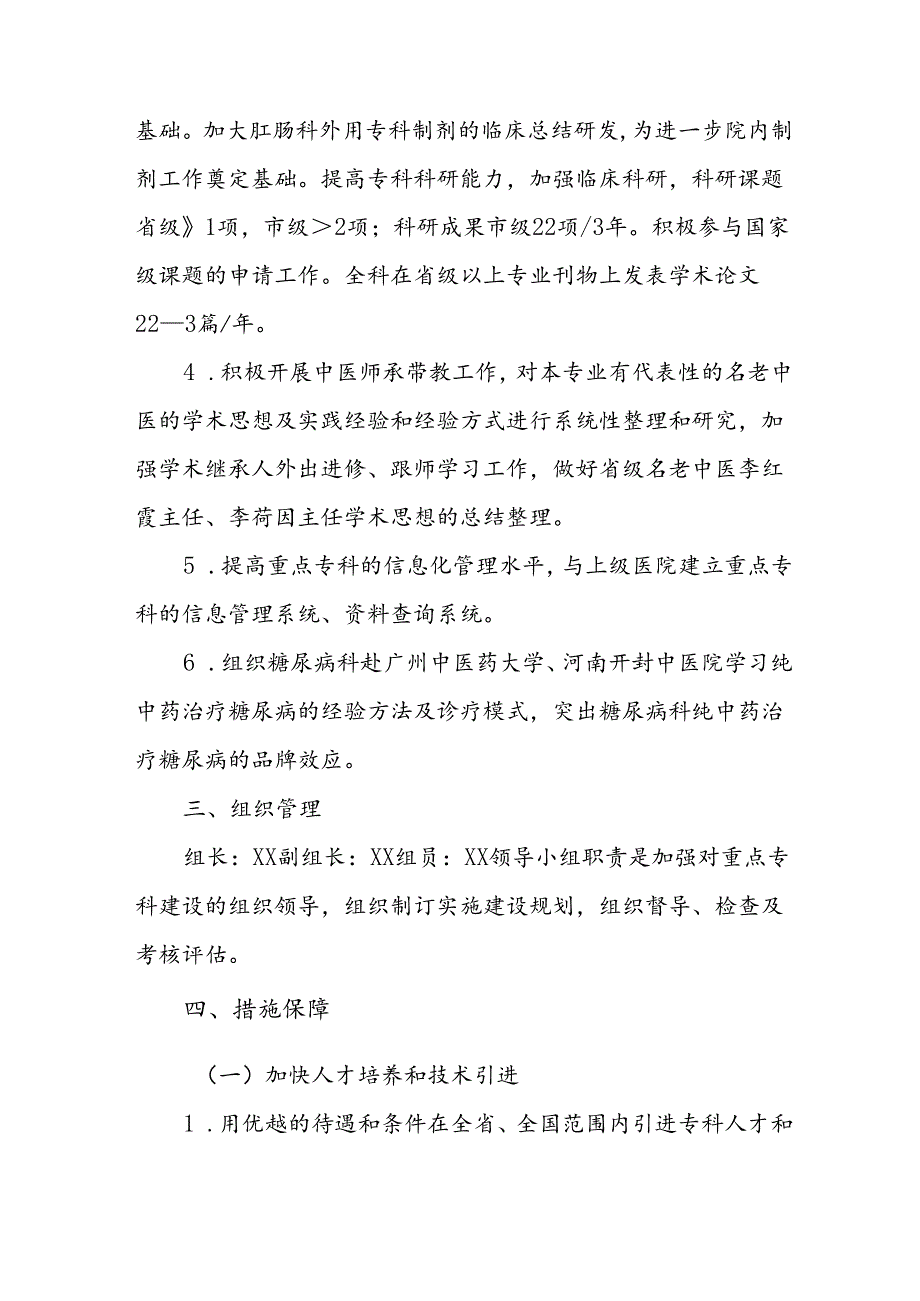 基础。加大肛肠科外用专科制剂的临床总结研发,为进一步院内制
剂工作奠定基础。提高专科科研能力，加强临床科研，科研课题
省级》1项，市级＞2项；科研成果市级22项/3年。积极参与国家
级课题的申请工作。全科在省级以上专业刊物上发表学术论文
22—3篇/年。
4 .积极开展中医师承带教工作,对本专业有代表性的名老中
医的学术思想及实践经验和经验方式进行系统性整理和研究，加
强学术继承人外出进修、跟师学习工作，做好省级名老中医李红
霞主任、李荷因主任学术思想的总结整理。
5 .提高重点专科的信息化管理水平,与上级医院建立重点专
科的信息管理系统、资料查询系统。
6 .组织糖尿病科赴广州中医药大学、河南开封中医院学习纯
中药治疗糖尿病的经验方法及诊疗模式，突出糖尿病科纯中药治
疗糖尿病的品牌效应。
三、组织管理
组长：XX副组长：XX组员：XX领导小组职责是加强对重点专
科建设的组织领导，组织制订实施建设规划，组织督导、检查及
考核评估。
四、措施保障
（一）加快人才培养和技术引进
1 .用优越的待遇和条件在全省、全国范围内引进专科人才和